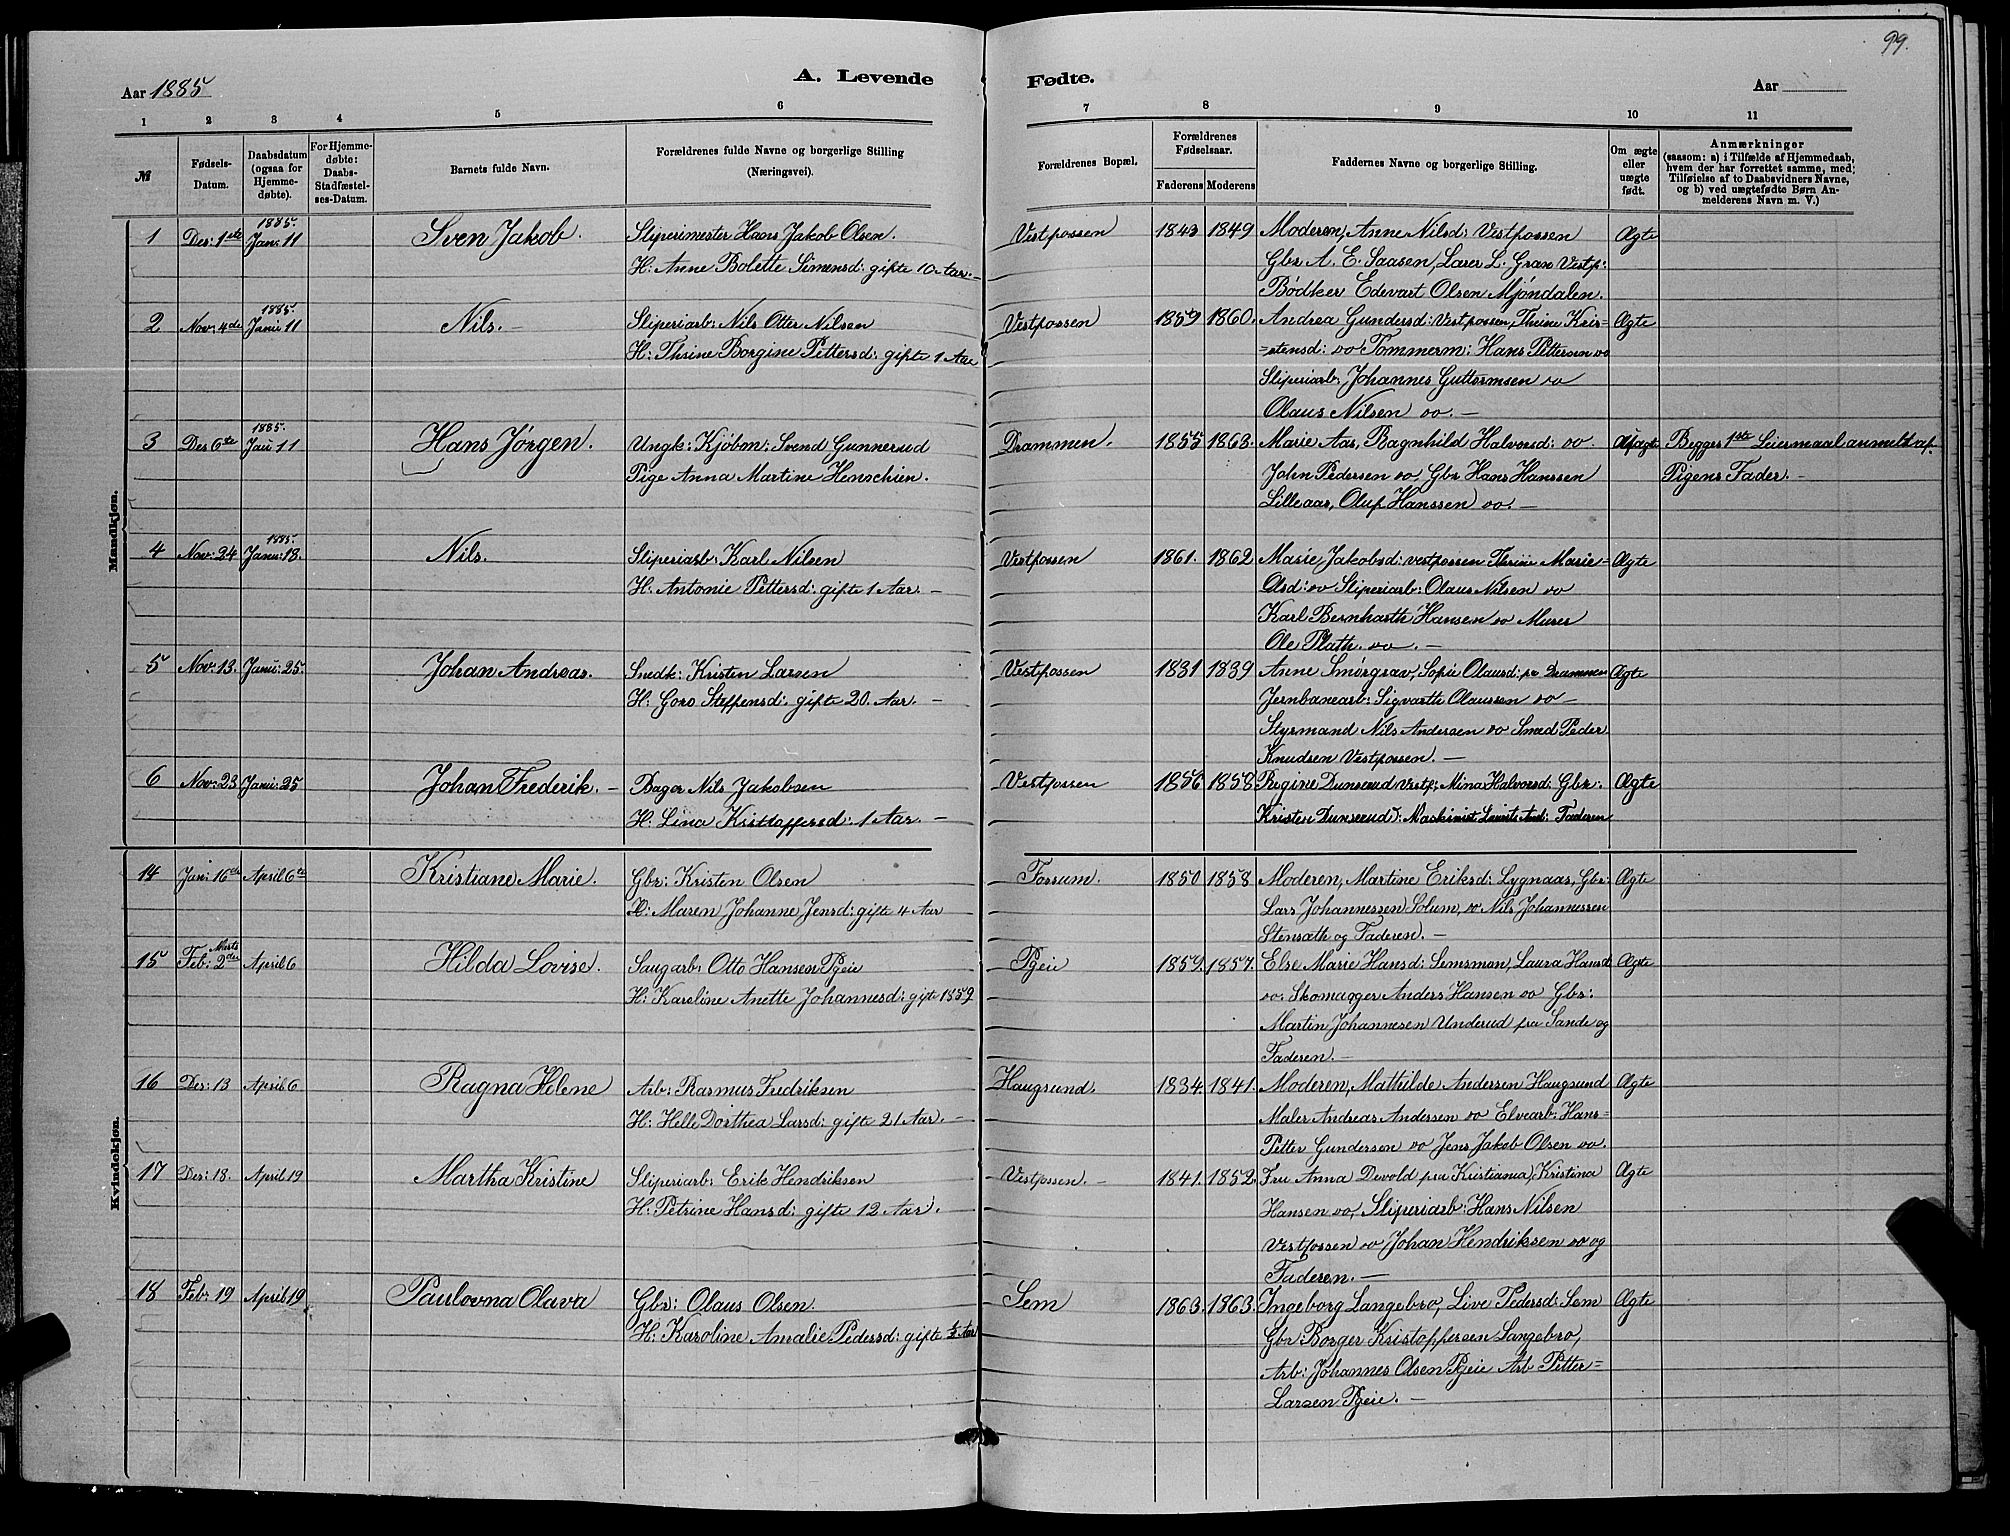 99.
A. Levende Fødte.
Aar 1885
Aar
1 2 3 4 5 6 7 8 9 10 11
№
Fødsels-Datum.
Daabsdatum (ogsaa for Hjemme-døbte).
For Hjemme-døbte: Daabs-Stadfæstel-ses-Datum.
Barnets fulde Navn.
Forældrenes fulde Navne og borgerlige Stilling (Næringsvei).
Forældrenes Bopæl.
Forældrenes Fødselsaar.
Faderens Moderens
Faddernes Navne og borgerlige Stilling.
Om ægte eller uægte født.
Anmærkninger
(saasom: a) i Tilfælde af Hjemmedaab,
hvem der har forrettet samme, med
Tilføielse af to Daabsvidners Navne,
og b) ved uægtefødte Børn An-
melderens Navn m. V.)
Mandkjøn.
1885.
1 Des: 1ste Jan: 11 Sven Jakob. Sliperimester Hans Jakob Olsen. Vestfossen 1843 1849 Moderen, Anne Nilsd: Vestfossen Ægte
H: Anne Bolette Simensd: gifte 10 Aar.— Gbr A. E. Saasen, Lærer L. Gran Vestf:
Bødker Edevart Olsen Mjøndalen.
1885.
2 Nov: 4de Janu: 11 Nils.— Sliperiarb: Nils Otter Nilsen Vestfossen 1859 1860. Andrea Gundersd: Vestfossen, Thrine Kris= Ægte
H: Thrine Borgine Pettersd: gifte 1 Aar =stensd: oo Tømmerm: Hans Pettersen oo
Sliperiarb: Johannes Guttormsen oo
Olaus Nilsen oo.—
1885.
3 Des 6te Jan 11 Hans Jørgen. Ungk: Kjøbm: Svend Gunnerud Drammen. 1855 1863. Marie Aas, Ragnhild Halvorsd: oo. Begges 1ste Leiermaal anmeldt af
Pige Anna Martine Henschien. John Pedersen oo Gbr Hans Hanssen Pigens Fader.—
Lilleaas, Oluf Hanssen oo.—
1885.
4 Nov: 24 Janu: 18. Nils. Sliperiarb: Karl Nilsen Vestfossen 1861. 1862 Marie Jakobsd: Vestfossen Thrine Marie= Ægte
H: Antonie Pettersd: gifte 1 Aar.— Olsd: oo Sliperiarb: Olaus Nilsen oo
Karl Bernharth Hansen oo Murer
Ole Plath. oo.—
5 Nov: 13. Janu: 25. Johan Andreas. Smedk: Kristen Larsen Vestfossen 1831 1839 Anne Smørgrav, Sofie Olausd: fra Drammen Ægte
H: Goro Steffensd: gifte 20. Aar.— Jernbanearb: Sigvarth Olaussen oo—
Styrmand Nils Andersen oo Smed Peder
Knudsen Vestfossen.—
6 Nov: 23 Janu: 25 Johan Frederik.— Bager Nils Jakobsen Vestfossen 1856 1858 Regine Dunserud Vestf: Mina Halvorsd: Gbr: Ægte
H: Lina Kristoffersd: 1 Aar.— Kristen Dunserud: Maskinist And: Faderen
Kvindekjøn.
14 Jan: 16de April 6te Kristiane Marie. Gbr: Kristen Olsen Fossum. 1850 1858 Moderen, Martine Eriksd: Lygnaas, Gbr: Ægte
H: Maren Johanne Jensd: gifte 4 Aar Lars Johannessen Solum, oo Nils Johannessen
Stensæth og Faderen.—
Marts
15 Feb: 2den April 6 Hilda Lovise. Saugarb: Otto Hansen Pgeie Pgeie 1859. 1857. Else Marie Hansd: Semsmoen, Laura Hansd Ægte
H: Karoline Anette Johannesd: gift 1859 oo: Skomager Anders Hansen oo Gbr:
Martin Johannesen Underud fra Sande og
Faderen.—
16 Des: 13 April 6 Ragna Helene Arb: Rasmus Fredriksen Haugsund. 1834. 1841. Moderen, Mathilde Andersen Haugsund Ægte
H: Helle Dorthea Larsd: gifte 21 Aar.— Maler Andreas Andersen oo Elvearb: Hans=
Petter Gundersen oo Jens Jakob Olsen oo.
17 Des: 18. April 19 Martha Kristine Sliperiarb: Erik Hendriksen Vestfossen.— 1841. 1852. Fru Anna Devold fra Kristiania, Kristina Ægte
H: Petrine Hansd: gifte 12 Aar. Hansen oo, Sliperiarb: Hans Nilsen
Vestfossen oo Johan Hendriksen oo og
Faderen.—
18 Feb: 19 April 19 Paulovna Olava Gbr: Olaus Olsen. Sem 1863. 1863. Ingeborg Langebro, Live Pedersd: Sem Ægte
H: Karoline Amalie Pedersd: gifte ½ Aar Gbr: Borger Kristoffersen Langebro,
Arb: Johannes Olsen Pgeie Arb Petter=
Larsen Pgeie.—